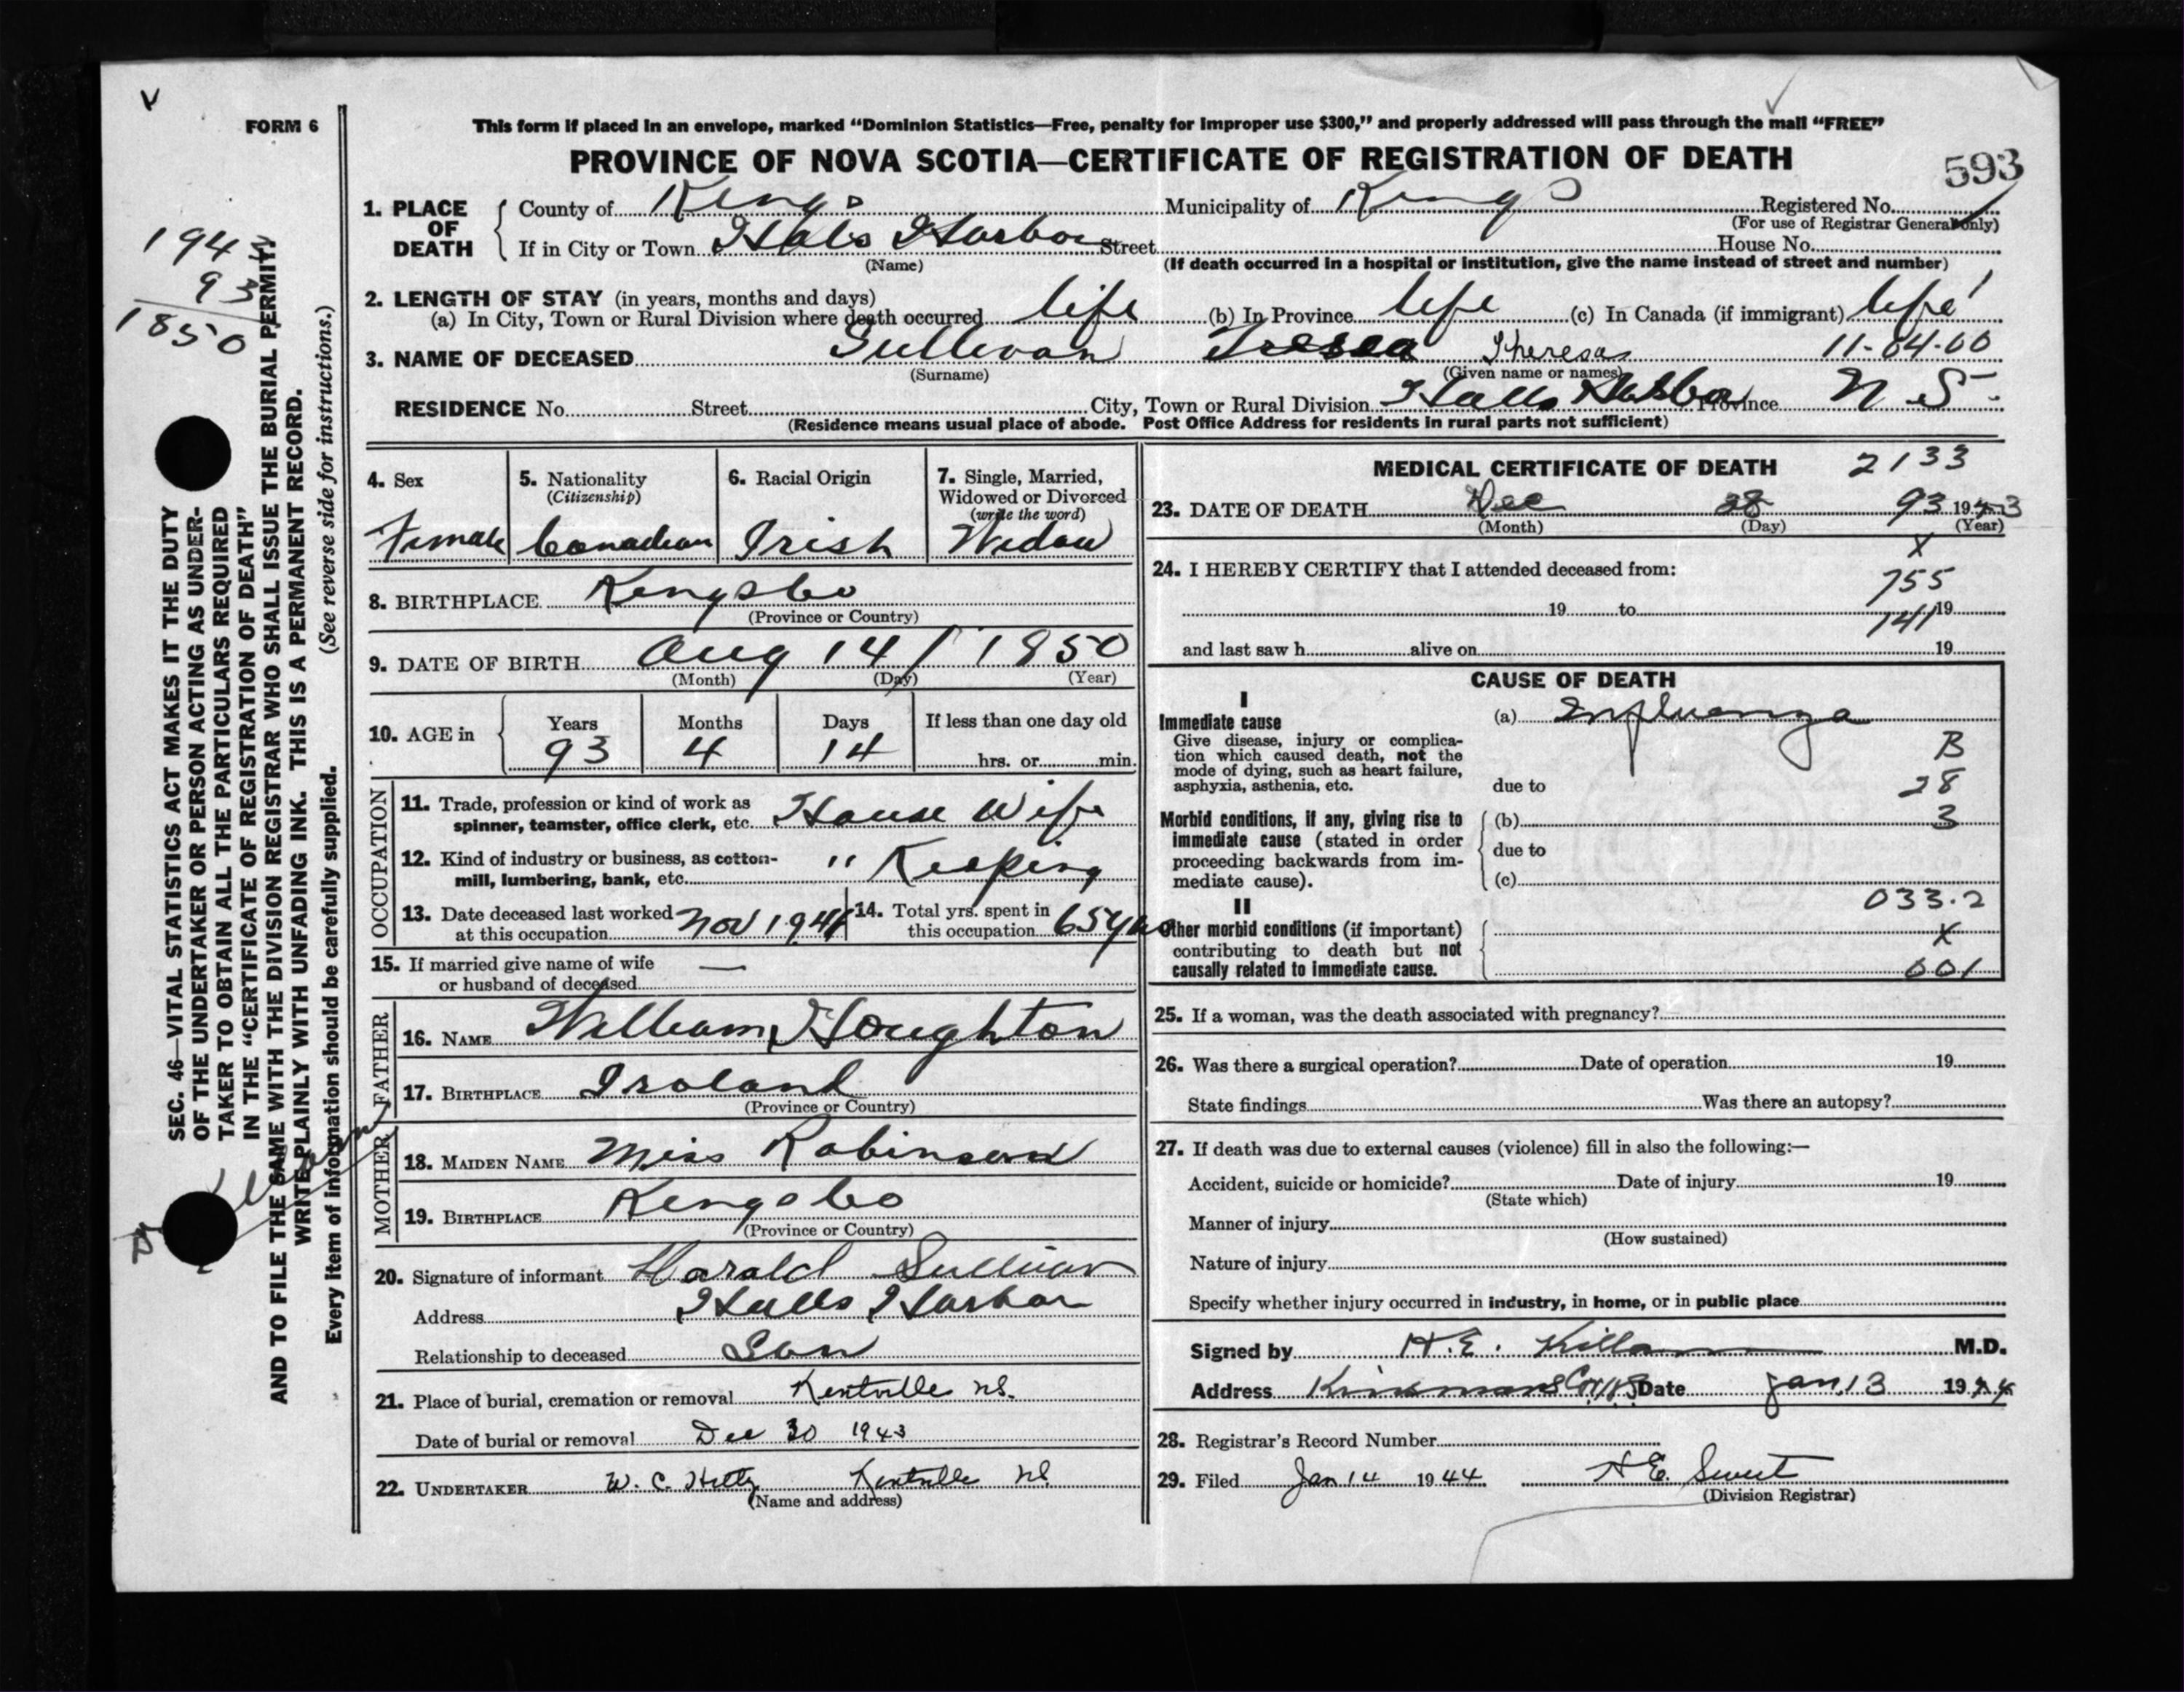 V
FORM 6
This form if placed in an envelope, marked “Dominion Statistics—Free, penalty for improper use $300,” and properly addressed will pass through the mail “FREE”
PROVINCE OF NOVA SCOTIA—CERTIFICATE OF REGISTRATION OF DEATH
593
1943
93
1850
SEC. 46—VITAL STATISTICS ACT MAKES IT THE DUTY
OF THE UNDERTAKER OR PERSON ACTING AS UNDER-
TAKER TO OBTAIN ALL THE PARTICULARS REQUIRED
IN THE “CERTIFICATE OF REGISTRATION OF DEATH”
AND TO FILE THE SAME WITH THE DIVISION REGISTRAR WHO SHALL ISSUE THE BURIAL PERMIT.
WRITE PLAINLY WITH UNFADING INK. THIS IS A PERMANENT RECORD.
Every item of information should be carefully supplied. (See reverse side for instructions.)
1. PLACE OF DEATH
County of Kings Municipality of Kings Registered No.
(For use of Registrar General only)
If in City or Town Halls Harbor Street House No.
(Name) (If death occurred in a hospital or institution, give the name instead of street and number)
2. LENGTH OF STAY (in years, months and days)
(a) In City, Town or Rural Division where death occurred life (b) In Province life (c) In Canada (if immigrant) life
3. NAME OF DECEASED Sullivan Tressa Theresa 11-04-00
(Surname) (Given name or names)
RESIDENCE No. Street City, Town or Rural Division Halls Harbor Province N. S.
(Residence means usual place of abode. Post Office Address for residents in rural parts not sufficient)
4. Sex
Female
5. Nationality
(Citizenship)
Canadian
6. Racial Origin
Irish
7. Single, Married,
Widowed or Divorced
(write the word)
Widow
8. BIRTHPLACE Kings Co
(Province or Country)
9. DATE OF BIRTH Aug 14 / 1850
(Month) (Day) (Year)
10. AGE in
Years Months Days If less than one day old
93 4 14 hrs. or min.
OCCUPATION
11. Trade, profession or kind of work as
spinner, teamster, office clerk, etc. House Wife
12. Kind of industry or business, as cotton-
mill, lumbering, bank, etc. " Keeping
13. Date deceased last worked
at this occupation Nov 1941
14. Total yrs. spent in
this occupation 65 yrs
15. If married give name of wife
or husband of deceased —
FATHER
16. NAME William Houghton
17. BIRTHPLACE Ireland
(Province or Country)
MOTHER
18. MAIDEN NAME Miss Robinson
19. BIRTHPLACE Kings Co
(Province or Country)
20. Signature of informant Harald Sullivan
Address Halls Harbor
Relationship to deceased Son
21. Place of burial, cremation or removal Kentville N.S.
Date of burial or removal Dec 30 1943
22. UNDERTAKER W. C. Kentville N.S.
(Name and address)
MEDICAL CERTIFICATE OF DEATH 2133
23. DATE OF DEATH Dec 28 93 1943
(Month) (Day) (Year)
X
24. I HEREBY CERTIFY that I attended deceased from:
755
19 to 19
141
and last saw h alive on 19
CAUSE OF DEATH
I
Immediate cause
Give disease, injury or complica-
tion which caused death, not the
mode of dying, such as heart failure,
asphyxia, asthenia, etc.
(a) Influenza
B
due to 28
Morbid conditions, if any, giving rise to
immediate cause (stated in order
proceeding backwards from im-
mediate cause).
(b) 3
due to
(c)
033.2
II
Other morbid conditions (if important)
contributing to death but not
causally related to immediate cause.
X
001
25. If a woman, was the death associated with pregnancy?
26. Was there a surgical operation? Date of operation 19
State findings Was there an autopsy?
27. If death was due to external causes (violence) fill in also the following:—
Accident, suicide or homicide? Date of injury 19
(State which)
Manner of injury
(How sustained)
Nature of injury
Specify whether injury occurred in industry, in home, or in public place
Signed by H. E. Killam M.D.
Address Kinsmans Cor N.S. Date Jan. 13 1944
28. Registrar's Record Number
29. Filed Jan 14 1944 Sweet
(Division Registrar)